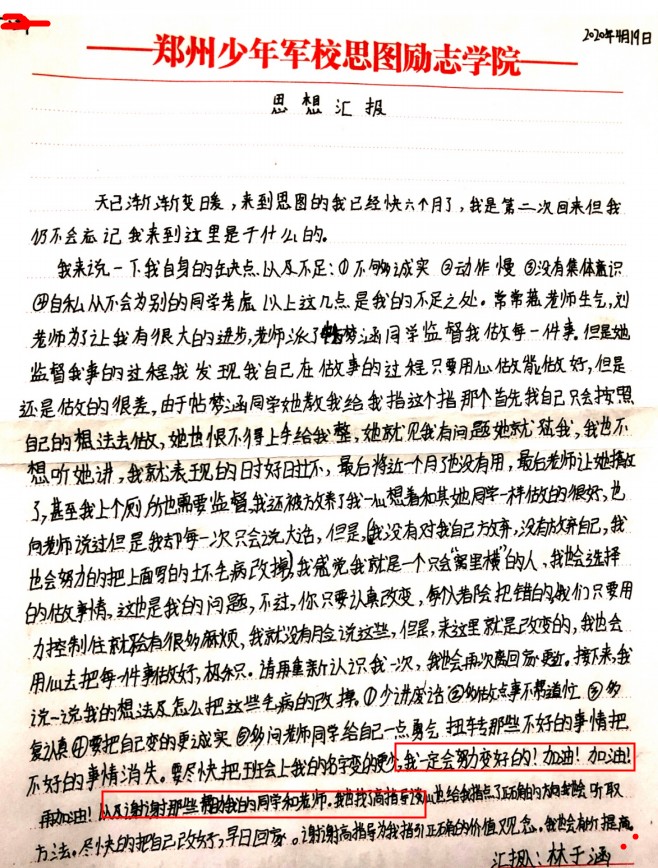 2020年4月19日
郑州少年军校思图励志学院
思想汇报
天已渐渐变暖，来到思图的我已经快六个月了，我是第二次回来但我
仍不会忘记我来到这里是干什么的。
我来说一下我自身的缺点以及不足：①不够诚实 ②动作慢 ③没有集体意识
④自私从不会为别的同学考虑 以上这几点是我的不足之处。常常惹老师生气，刘
老师为了让我有很大的进步，老师派了帖梦涵同学监督我做每一件事。但是她
监督我事的过程，我发现我自己在做事的过程只要用心做就能做好，但是
还是做的很差，由于帖梦涵同学她教我给我指这个指那个首先我自己只会按照
自己的想法去做，她也恨不得上手给我整，她就见我有问题她就 我，我也不
想听她讲，我就表现的时好时坏，最后将近一个月了也没有用，最后老师让她撤
了，甚至我上个厕所也需要监督，我还被放弃了我一心想着和其她同学一样做的很好，也
向老师说过但是我却每一次只会说大话，但是，(我没有对我自己放弃，没有放弃自己，我
也会努力的把上面写的坏毛病改掉)，我感觉我就是一个只会“窝里横”的人，我也会选择
的做事情，这也是我的问题，不过，你只要认真改变，每个人都会把错的 我们只要用
力控制住就不会有很多麻烦，我就没有脸说这些，但是，来这里就是改变的，我也会
用心去把每一件事做好，极标只。请再重新认识我一次，我也会再次离回家更近。接下来，我
说一说我的想法及怎么把这些毛病的改掉。①少讲废话 ②多做点事不帮道忙 ③多
复认真 ④要把自己变的更诚实 ⑤多问老师同学给自己一点勇气 扭转那些不好的事情把
不好的事情消失。要尽快把班会上我的名字变的更少，我一定会努力变好的！加油！加油！
再加油！以及谢谢那些帮助我的同学和老师。我也找高指导谈心也给我指点了正确的方向我会听取
方法。尽快的把自己改好，早日回家。谢谢高指导为我指引正确的价值观念。我也会有所提高。
汇报人：林于涵